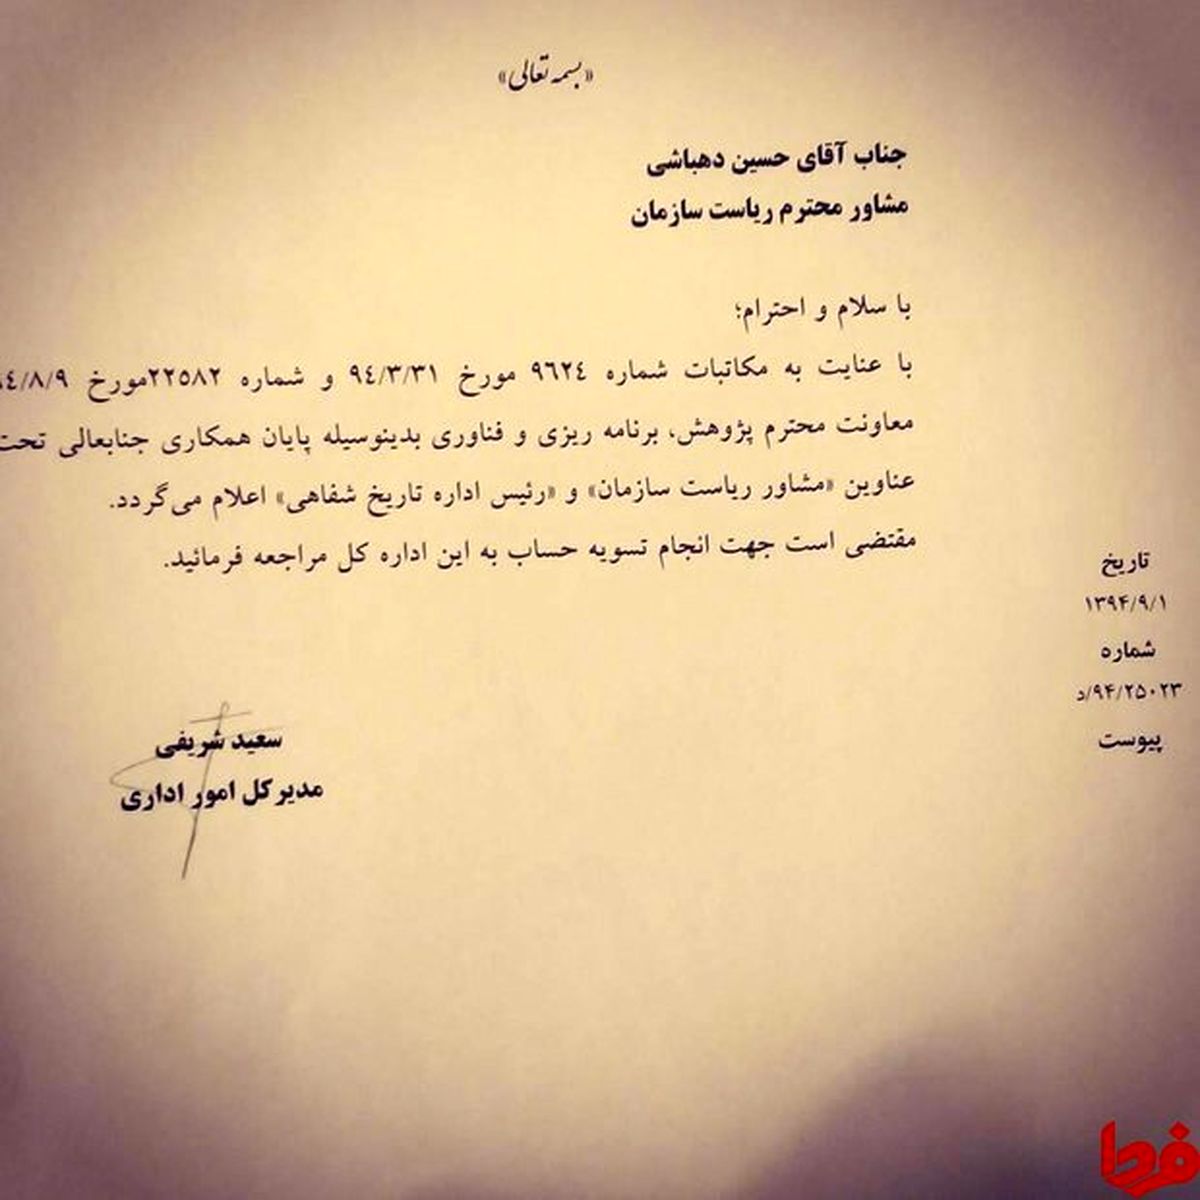 «بسمه تعالی»
جناب آقای حسین دهباشی
مشاور محترم ریاست سازمان
با سلام و احترام؛
با عنایت به مکاتبات شماره ٩٦٢٤ مورخ ٩٤/٣/٣١ و شماره ٢٢٥٨٢مورخ ٩٤/٨/٩
معاونت محترم پژوهش، برنامه ریزی و فناوری بدینوسیله پایان همکاری جنابعالی تحت
عناوین «مشاور ریاست سازمان» و «رئیس اداره تاریخ شفاهی» اعلام می‌گردد.
مقتضی است جهت انجام تسویه حساب به این اداره کل مراجعه فرمائید.
تاریخ
۱۳۹۴/۹/۱
شماره
۹۴/۲۵۰۲۳/د
پیوست
سعید شریفی
مدیرکل امور اداری
فردا